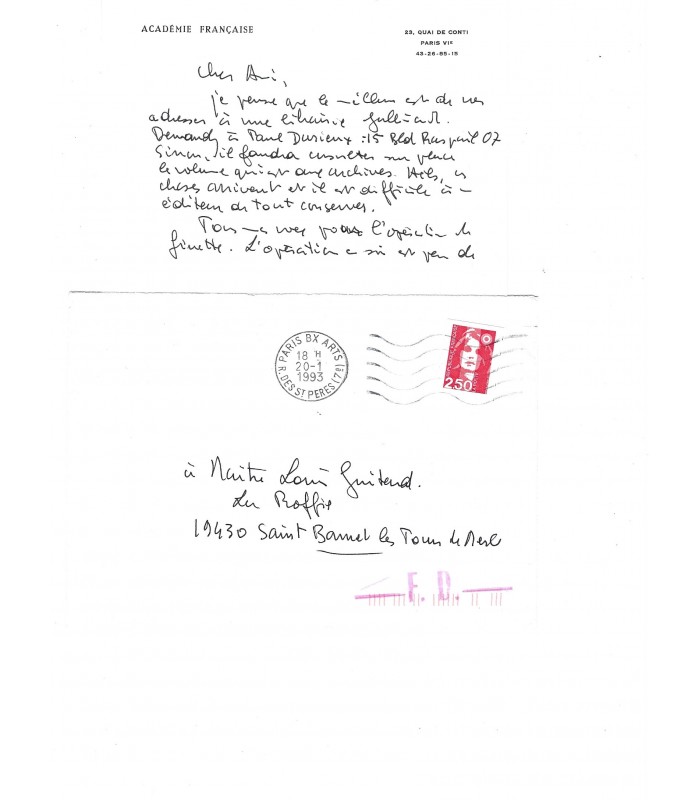 ACADÉMIE FRANÇAISE
23, QUAI DE CONTI
PARIS VIe
43-26-85-15
Cher Ami,
je pense que le est de vous
adresser à une librairie
Demandez à Paul Dusieux : 15 Bld Raspail 07
Sinon, il faudra consulter sur place
le volume qui est aux archives. Hélas, ces
choses arrivent et il est difficile à un
éditeur de tout conserver.
Tous mes pour l'opération de
Ginette. L'opération en soi est peu de
PARIS BX ARTS (7e)
18 H
20-1
1993
R. DES ST PERES
2,50
à Maître Louis
La
19430 Saint les Tours de Merle
F. D.